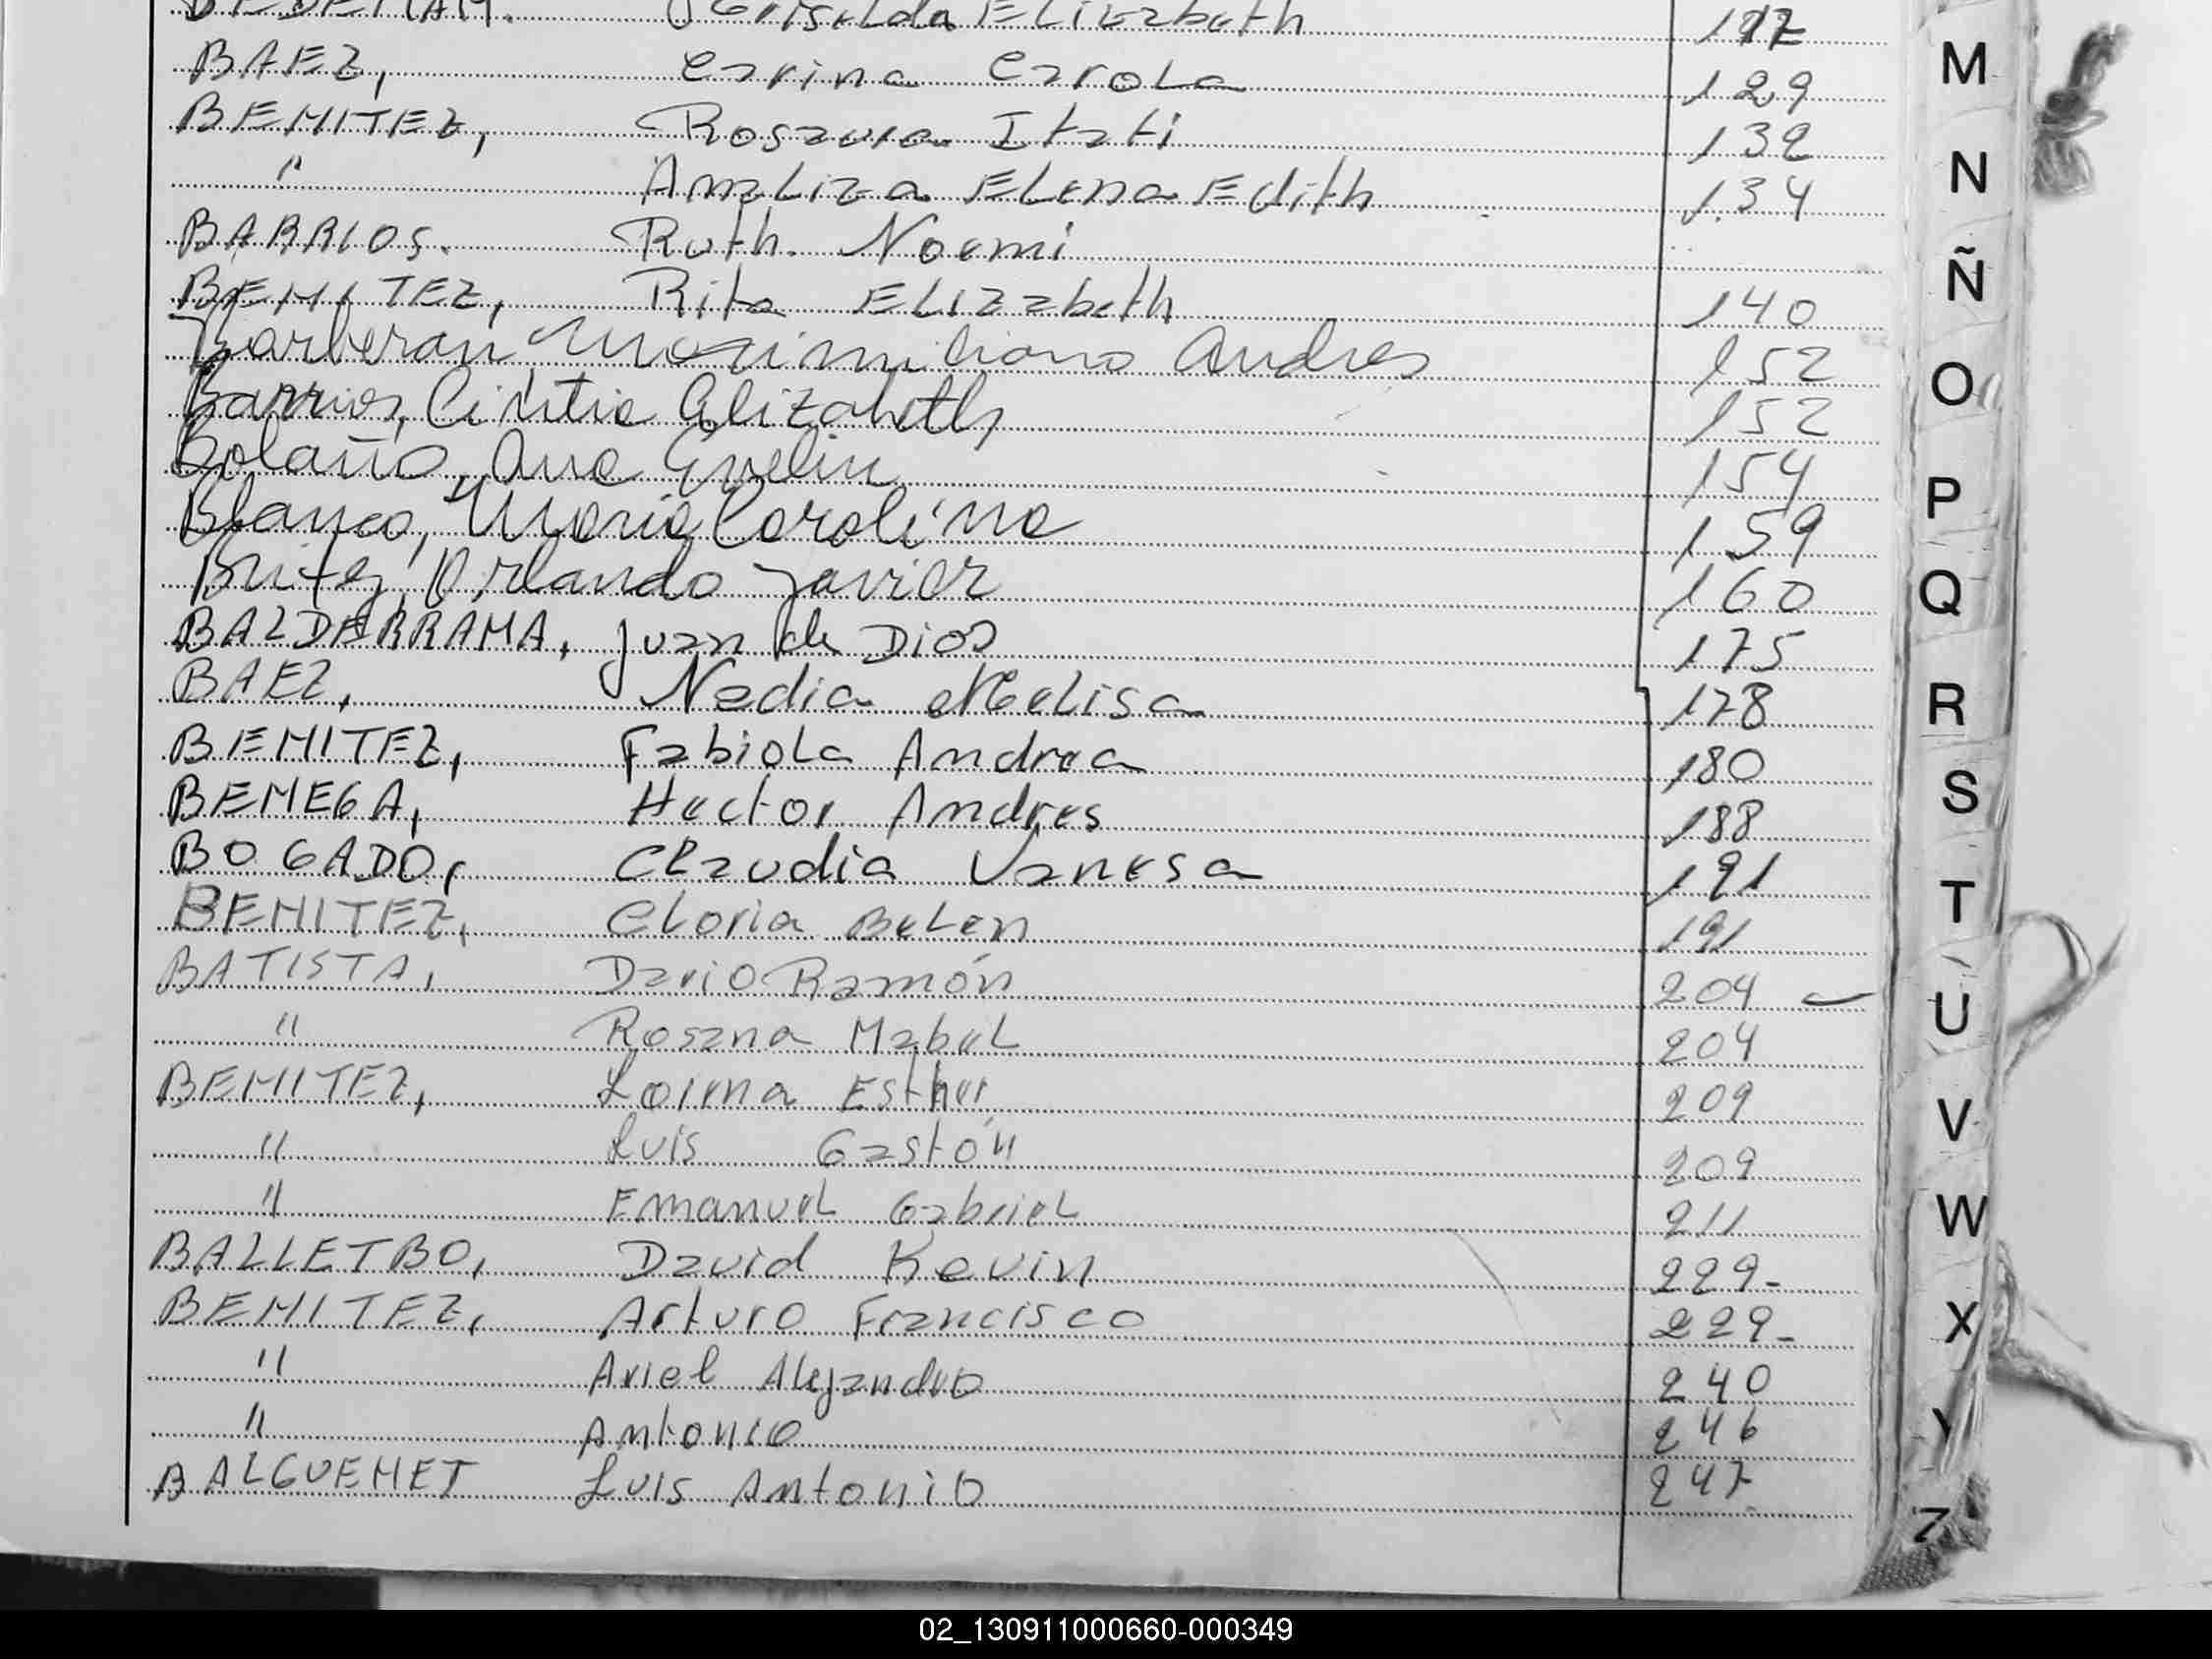 Elizabeth 117
BAEZ, Carina Carola 129
BENITEZ, Rosaura Itati 132
" Amaliza Elena Edith 134
BARRIOS. Ruth. Noemi
BENITEZ, Rita Elizabeth 140
Barberan Maximiliano Andres 152
Barrios, Cintia Elizabeth 152
Bolaño, Ana Evelin 154
Blanco, Maria Carolina 159
Britez, Orlando Javier 160
BALDERRAMA, Juan de Dios 175
BAEZ, Nadia Melisa 178
BENITEZ, Fabiola Andrea 180
BENEGA, Hector Andres 188
BOGADO, Claudia Vanesa 191
BENITEZ, Gloria Belen 191
BATISTA, Dario Ramón 204
" Rosana Mabel 204
BENITEZ, Lorena Esther 209
" Luis Gastón 209
" Emanuel Gabriel 211
BALLETBO, David Kevin 229-
BENITEZ, Arturo Francisco 229-
" Ariel Alejandro 240
" Antonio 246
BALGUENET Luis Antonio 247
M
N
Ñ
O
P
Q
R
S
T
U
V
W
X
Y
Z
02_130911000660-000349